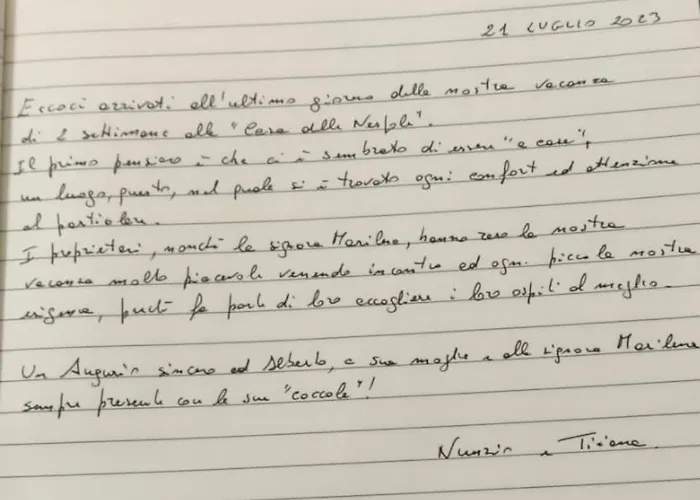 21 LUGLIO 2023
Eccoci arrivati all'ultimo giorno della nostra vacanza
di 2 settimane alla "Casa delle Nespole".
Il primo pensiero è che ci è sembrato di essere "a casa",
un luogo, questo, nel quale si è trovato ogni confort ed attenzione
al particolare.
I proprietari, nonché la signora Marilena, hanno reso la nostra
vacanza molto piacevole venendo incontro ad ogni piccola nostra
esigenza, perché fa parte di loro accogliere i loro ospiti al meglio.
Un Augurio sincero ad Alberto, a sua moglie e alla signora Marilena
sempre presente con le sue "coccole"!
Nunzio e Tiziana